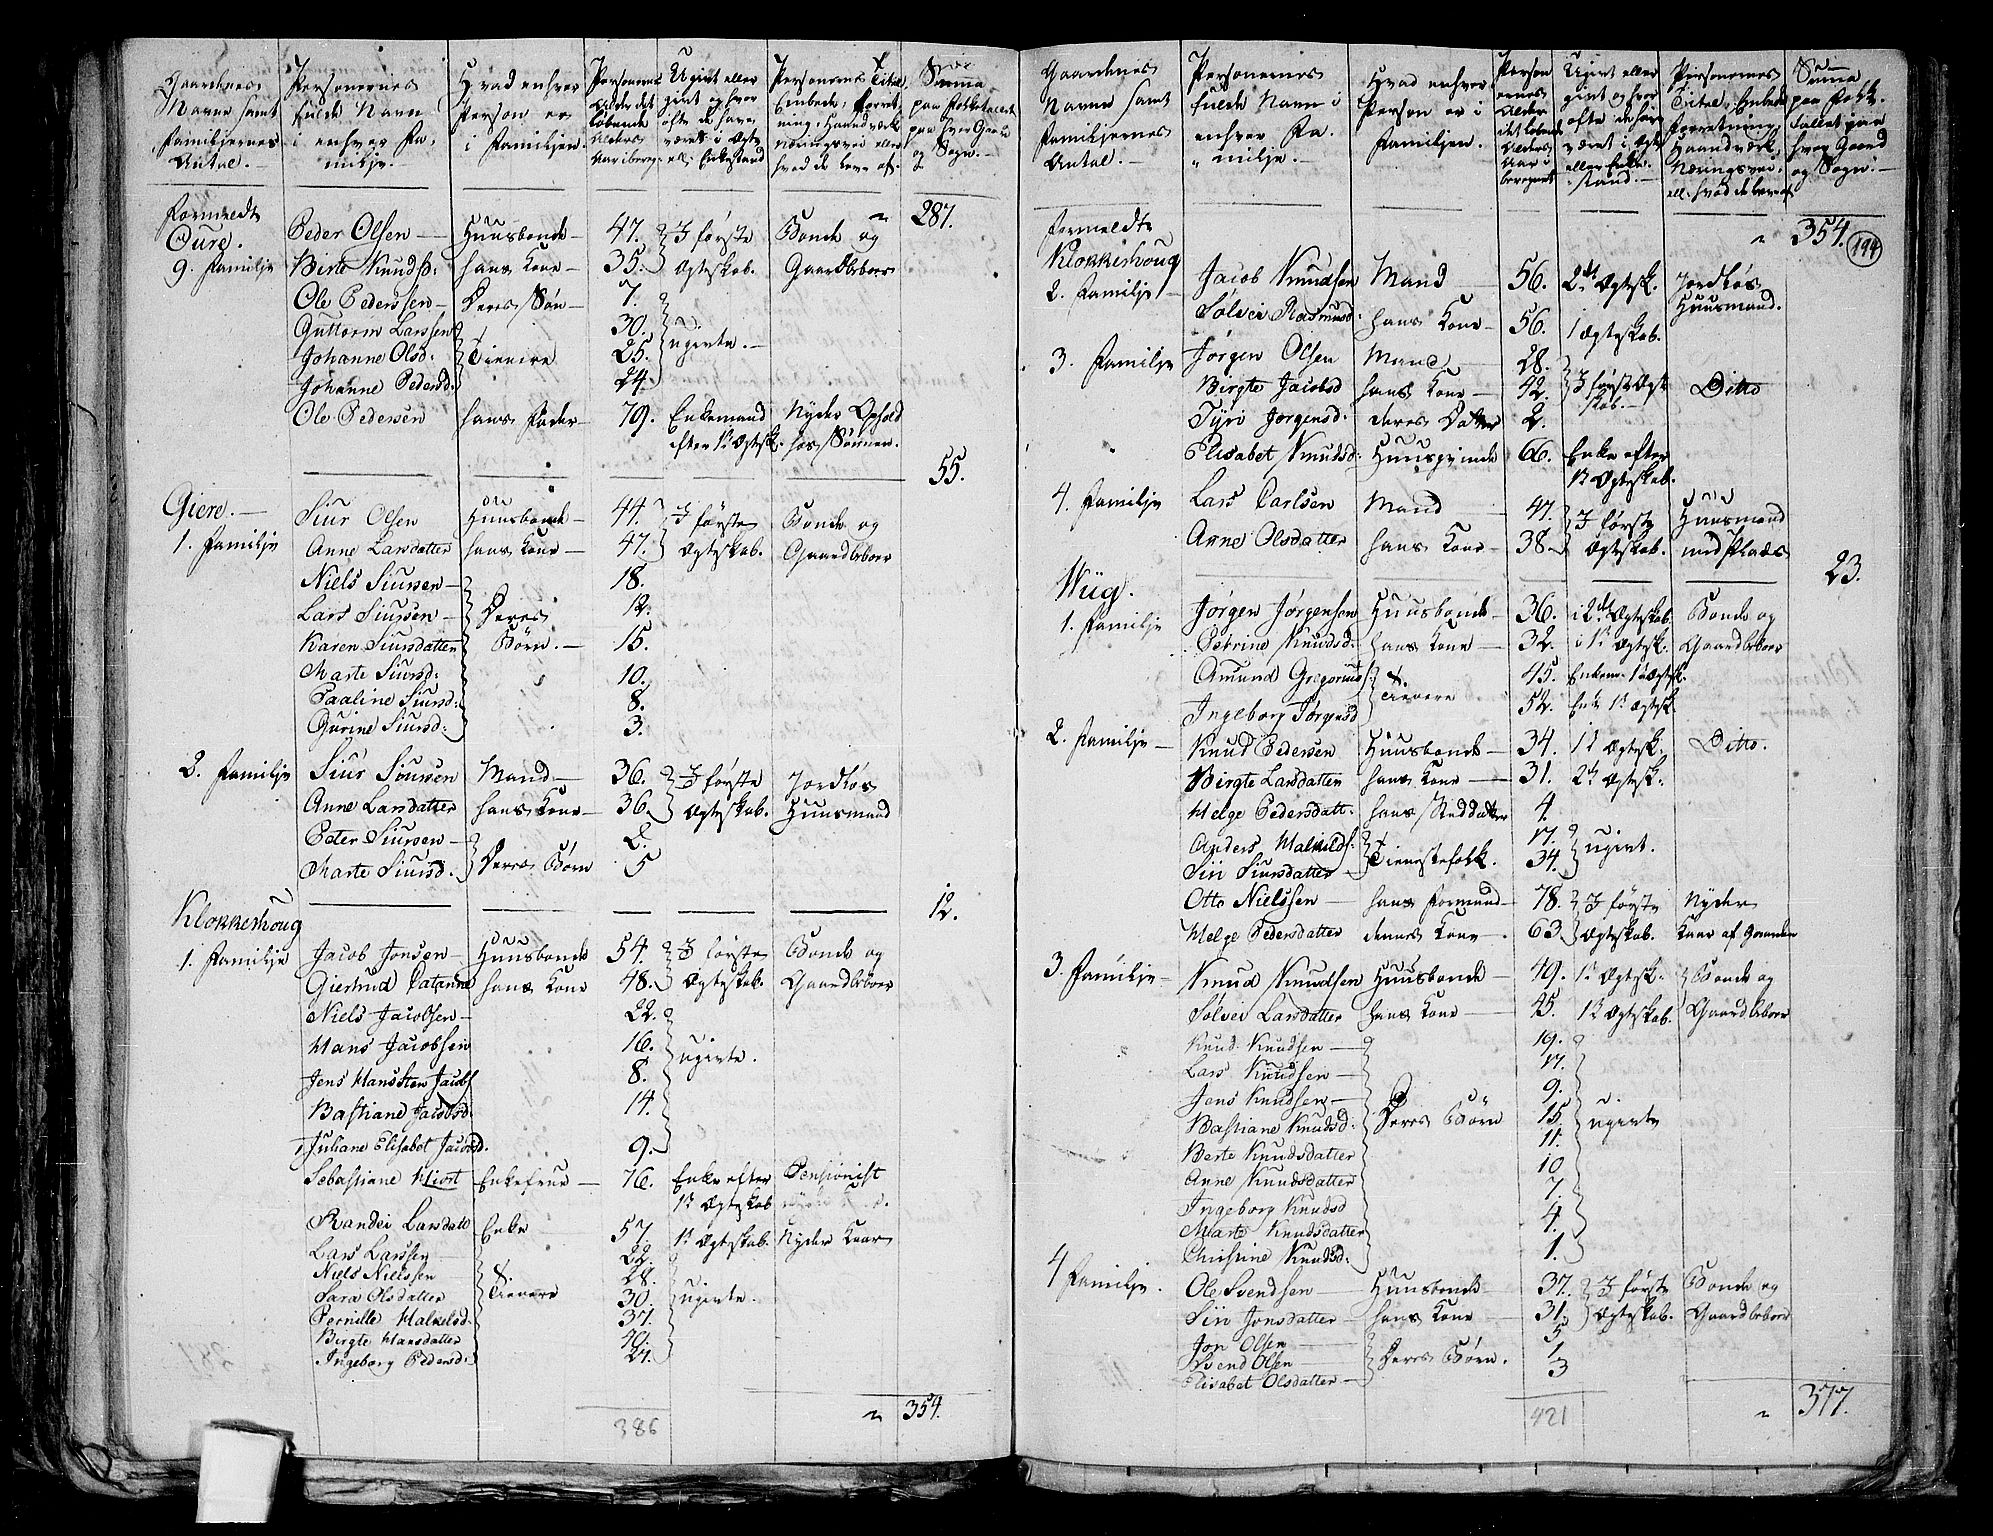 Gaardenes Navne samt Familjernes Antal.
Personernes fulde Navn i enhver Familje.
Hvad enhver Person er i Familjen.
Personernes Alder det løbende Alders Aar iberegnet
Ugivt eller givt og hvor ofte de have været i Ægte eller Enkestand
Personernes Titel, Embede, Forretning, Haandværk, Næringsvei eller hvad de leve af.
Summa paa Folketallet paa hver Gaard og Sogn.
formeldte 287.
Qure.
9. Familje
Peder Olsen — Huusbonde — 47. I første Bonde og
Birte Knudsd: hans Kone — 35. Ægteskab. Gaardbeboer
Ole Pedersen — Deres Søn — 7.
Guttorm Larssen 30. ugivte.
Johanne Olsd: Tienere 25.
Johanne Pedersd: 24.
Ole Pedersen hans Fader — 79. Enkemand Nyder Ophold
efter 1ste Ægtesk: hos Sønnen.
55.
Giere. —
1. Familje
Siur Olsen Huusbonde — 44. I første Bonde og
Anne Larsdatter hans Kone — 47. Ægteskab. Gaardbeboer
Niels Siursen — 18.
Lars Siursen — Deres 12.
Karen Siursdatter Børn. — 15.
Marte Siursd: 10.
Paaline Siursd: 8.
Gurine Siursd: 3.
2. Familje Siur Siursen Mand — 36. I første Jordløs
Anne Larsdatter hans Kone — 36. Ægteskab. Huusmand
Peter Siursen — 2.
Marte Siursd. Deres Børn 5
12.
Klokkerhoug
1. Familje
Jacob Jonsen — Huusbonde 54. I første Bonde og
Giertrud Catarine hans Kone 48. Ægteskab. Gaardbeboer
Niels Jacobsen — 22.
Hans Jacobsen 16. ugivte.
Jens Hansten Jacobs 8.
Bastiane Jacobsd. 14.
Juliane Elisabet Jacobsd. 9.
Sebastiane Hiort Enkefrue — 76. Enke efter Pensionist
1ste Ægteskab
Randei Larsdatt Enke 57. 1ste Ægteskab. Nyder Kaar
Lars Larssen 22.
Niels Nielssen 28.
Sara Olsdatter Tienere 30. ugivte.
Pernille Halkelsd. 37.
Birgte Hansdatter 40.
Ingeborg Pedersd: 27.
386
354.
Gaardenes Navne samt Familjernes Antal. —
Personernes fulde Navn i enhver Familje.
Hvad enhver Person er i Familjen.
Personernes Alder det løbende Alders Aar beregnet
Ugivt eller givt og hvor ofte de have været i Ægte eller Enke Stand. —
Personernes Titel, Embede Forretning Haandværk, Næringsvei, ell: hvad de leve af.
Summa paa Folketallet paa hver Gaard og Sogn. —
formeldte 354. 194
Klokkerhoug
2. Familje — Jacob Knudsen Mand — 56. 2det Ægtesk. Jordløs
Huusmand.
Solvei Rasmusd: hans Kone — 56. 1 Ægteskab.
3. Familje Jørgen Olsen Mand 28.
Birgte Jacobsd hans Kone — 42. I første Ægteskab. — Ditto
Tyri Jørgensd: deres Datter 2.
Elisabet Knudsd: Huusqvinde 66. Enke efter
1ste Ægteskab.
4. Familje Lars Carlsen Mand 47. I første Huusmand
Anne Olsdatter hans Kone — 38. Ægteskab. med Plads
23.
Wüg.
1. Familje Jørgen Jørgensen Huusbonde — 36. i 2det Ægteskab. Bonde og
Petrine Knudsd. hans Kone — 32. i 1ste Ægtesk. Gaardbeboer
Amund Gregorius: 45. Enkem: 1ste Ægtesk.
Ingeborg Jørgensd Tienere 52. Enke 1ste Ægtesk.
2. Familje — Knud Pedersen Huusbonde — 34. 1ste Ægtesk. Ditto.
Birgte Larsdatter hans Kone — 31. 2det Ægtesk.
Helge Pedersdatt. hans Steddatter 4.
Anders Halkilds: 17. ugivt.
Siri Siursdatter — Tienestefolk. 34.
Otto Nielssen — hans Formand — 78. I første Nyder
Helge Pedersdatter dennes Kone — 63. Ægteskab. Kaar af Gaarden
3. Familje — Knud Knudsen Huusbonde — 49. 1ste Ægtesk. Bonde og
Solvei Larsdatter hans Kone — 45. 1ste Ægteskab. Gaardbeboer
Knud Knudsen — 19.
Lars Knudsen — 17.
Jens Knudsen — 9.
Bastiane Knudsd. Deres Børn 15. ugivte
Berte Knudsdatter 11.
Anne Knudsdatter 10
Ingeborg Knudsd 7.
Marte Knudsdatter 4.
Christine Knudsd: 1.
4 Familje. Ole Svendsen — Huusbonde 37. I første Bonde og
Siri Jonsdatter — hans Kone — 31. Ægteskab. Gaardbeboer
Jon Olsen — 5
Svend Olsen — Deres Børn. 1
Elisabet Olsdatter — 3
421
377.